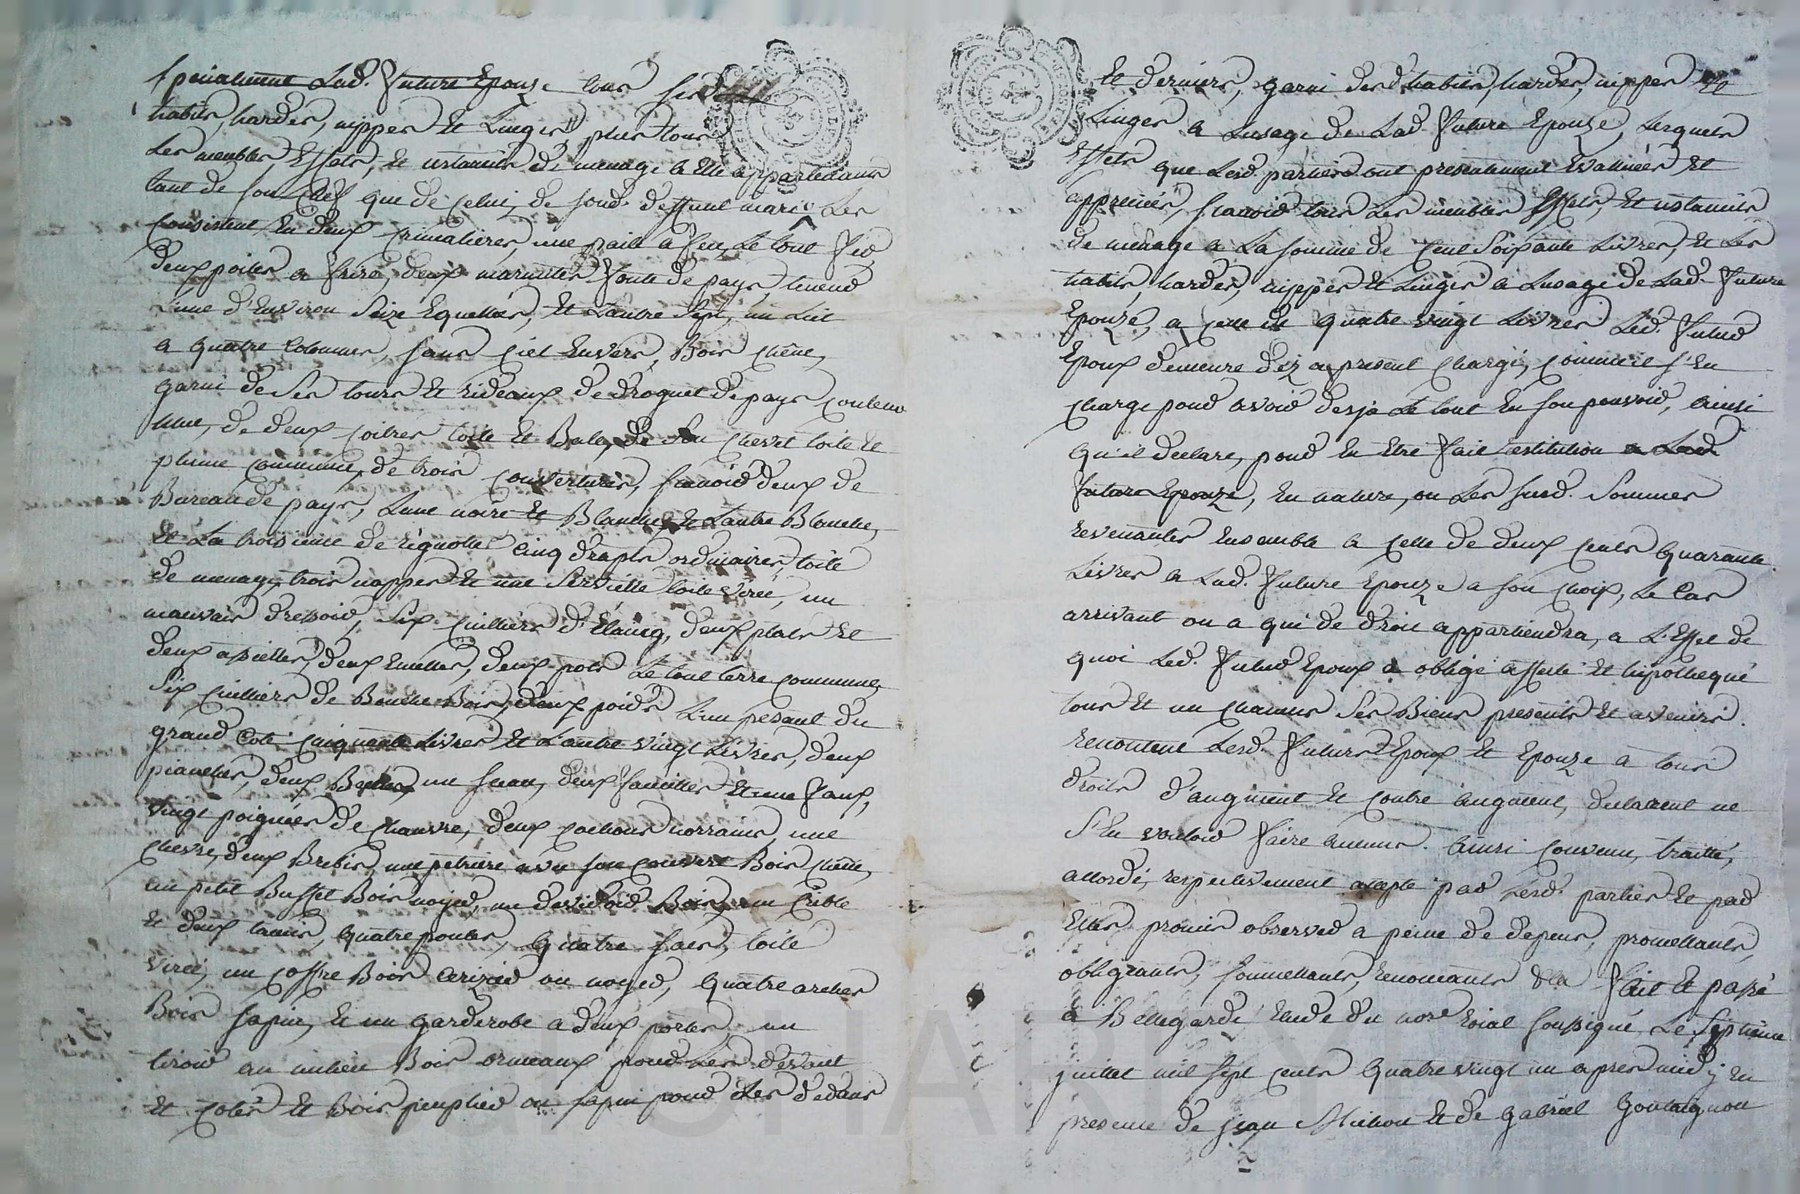 specialement Lad. future Epouze tous ses
habits, hardes, nippes et Linges, plus tous
Les meubles, Effets, et ustancils de menage a Elle appartenants
tant de son chef que de celuy de fond. deffunt mari Les
consistent En deux crimalieres, une paile a feu Le tout fer
deux poiles a frire, deux marmites fonte de pays, tenend
L'une d'Environ Seize Equelles, Et L'autre Sept, un Lit
a quatre Colonnes, sans Ciel Envers, Bois chêne,
garni de Ses tours et rideaux de droguet de pays couleur
de deux coitres toile et Bale, de Son chevet toile et
plume commune, de trois couvertures, sçavoir deux de
Bureau de pays, L'une noire et Blanche, et L'autre Blanche,
Et La troisieme de cinq draps ordinaires, toile
de menage, trois nappes Et une Serviette toile virée, un
mauvais dressoir, Six cuilliers d'Etaing, deux plats Et
deux assiettes, deux Emelles, deux pots Le tout terre commune,
Six cuilliers de Bouche Bois, deux poids L'un pesant du
grand Coté cinquante Livres Et L'autre vingt Livres, deux
pianches, deux un seau, deux faucilles Et une faux,
vingt poignées de chanvre, deux cochons norrains, une
chevre, deux Brebis, une petriere avec son couvert Bois chêne,
un petit Buffet Bois noyer, un devidoir Bois, un Crible
Et deux tamis, quatre poules, quatre sacs, toile
virée, un coffre Bois Cerizier ou noyer, quatre arches
Bois sapin, Et un garderobe a deux portes, un
tiroir au milieu Bois ormeaux pour Les devant
Et cotés Et Bois peuplier ou sapin pour Les dedans
Et derniers, garni desd. habits, hardes, nippes et
Linges a Lusage de Lad. future Epouze, Lesquels
Effets que Lesd. parties ont presentement Evalluées Et
appreciés, scavoir tous Les meubles Effets, Et ustancils
de menage a La somme de Cent Soixante Livres, Et Les
habits, hardes, nippes Et Linges a Lusage de Lad. future
Epouze, a celle de quatre vingt Livres Led. futur
Epoux demeure dez a present chargé, comme il s'En
charge pour avoir desja Le tout En son pouvoir, ainsi
qu'il declare, pour En Etre fait restitution a Lad.
future Epouze, En nature, ou Les susd. Sommes
revenantes Ensemble a Celle de deux Cents quarante
Livres a Lad. future Epouze a son choix, Le Cas
arrivant ou a qui de droit appartiendra, a L'Effet de
quoi Led. futur Epoux a obligé affecté Et hipothequé
tous Et un chacuns Ses Biens presents Et avenirs.
renoncent Lesd. futurs Epoux Et Epouze a tous
droits d'augment Et contre augment, declarent ne
S'En vouloir faire aucuns. Ainsi convenu, traitté,
accordé, respectivement accepté par Lesd. parties Et par
Elles promis observer a peine de depens, promettants,
obligeants, soumettants, renonceants &ca fait Et passé
a Bellegarde Etude du nore roial soussigné, Le septieme
juillet mil sept cents quatre vingt un apres midy En
presence de jean Michon Et de gabriel